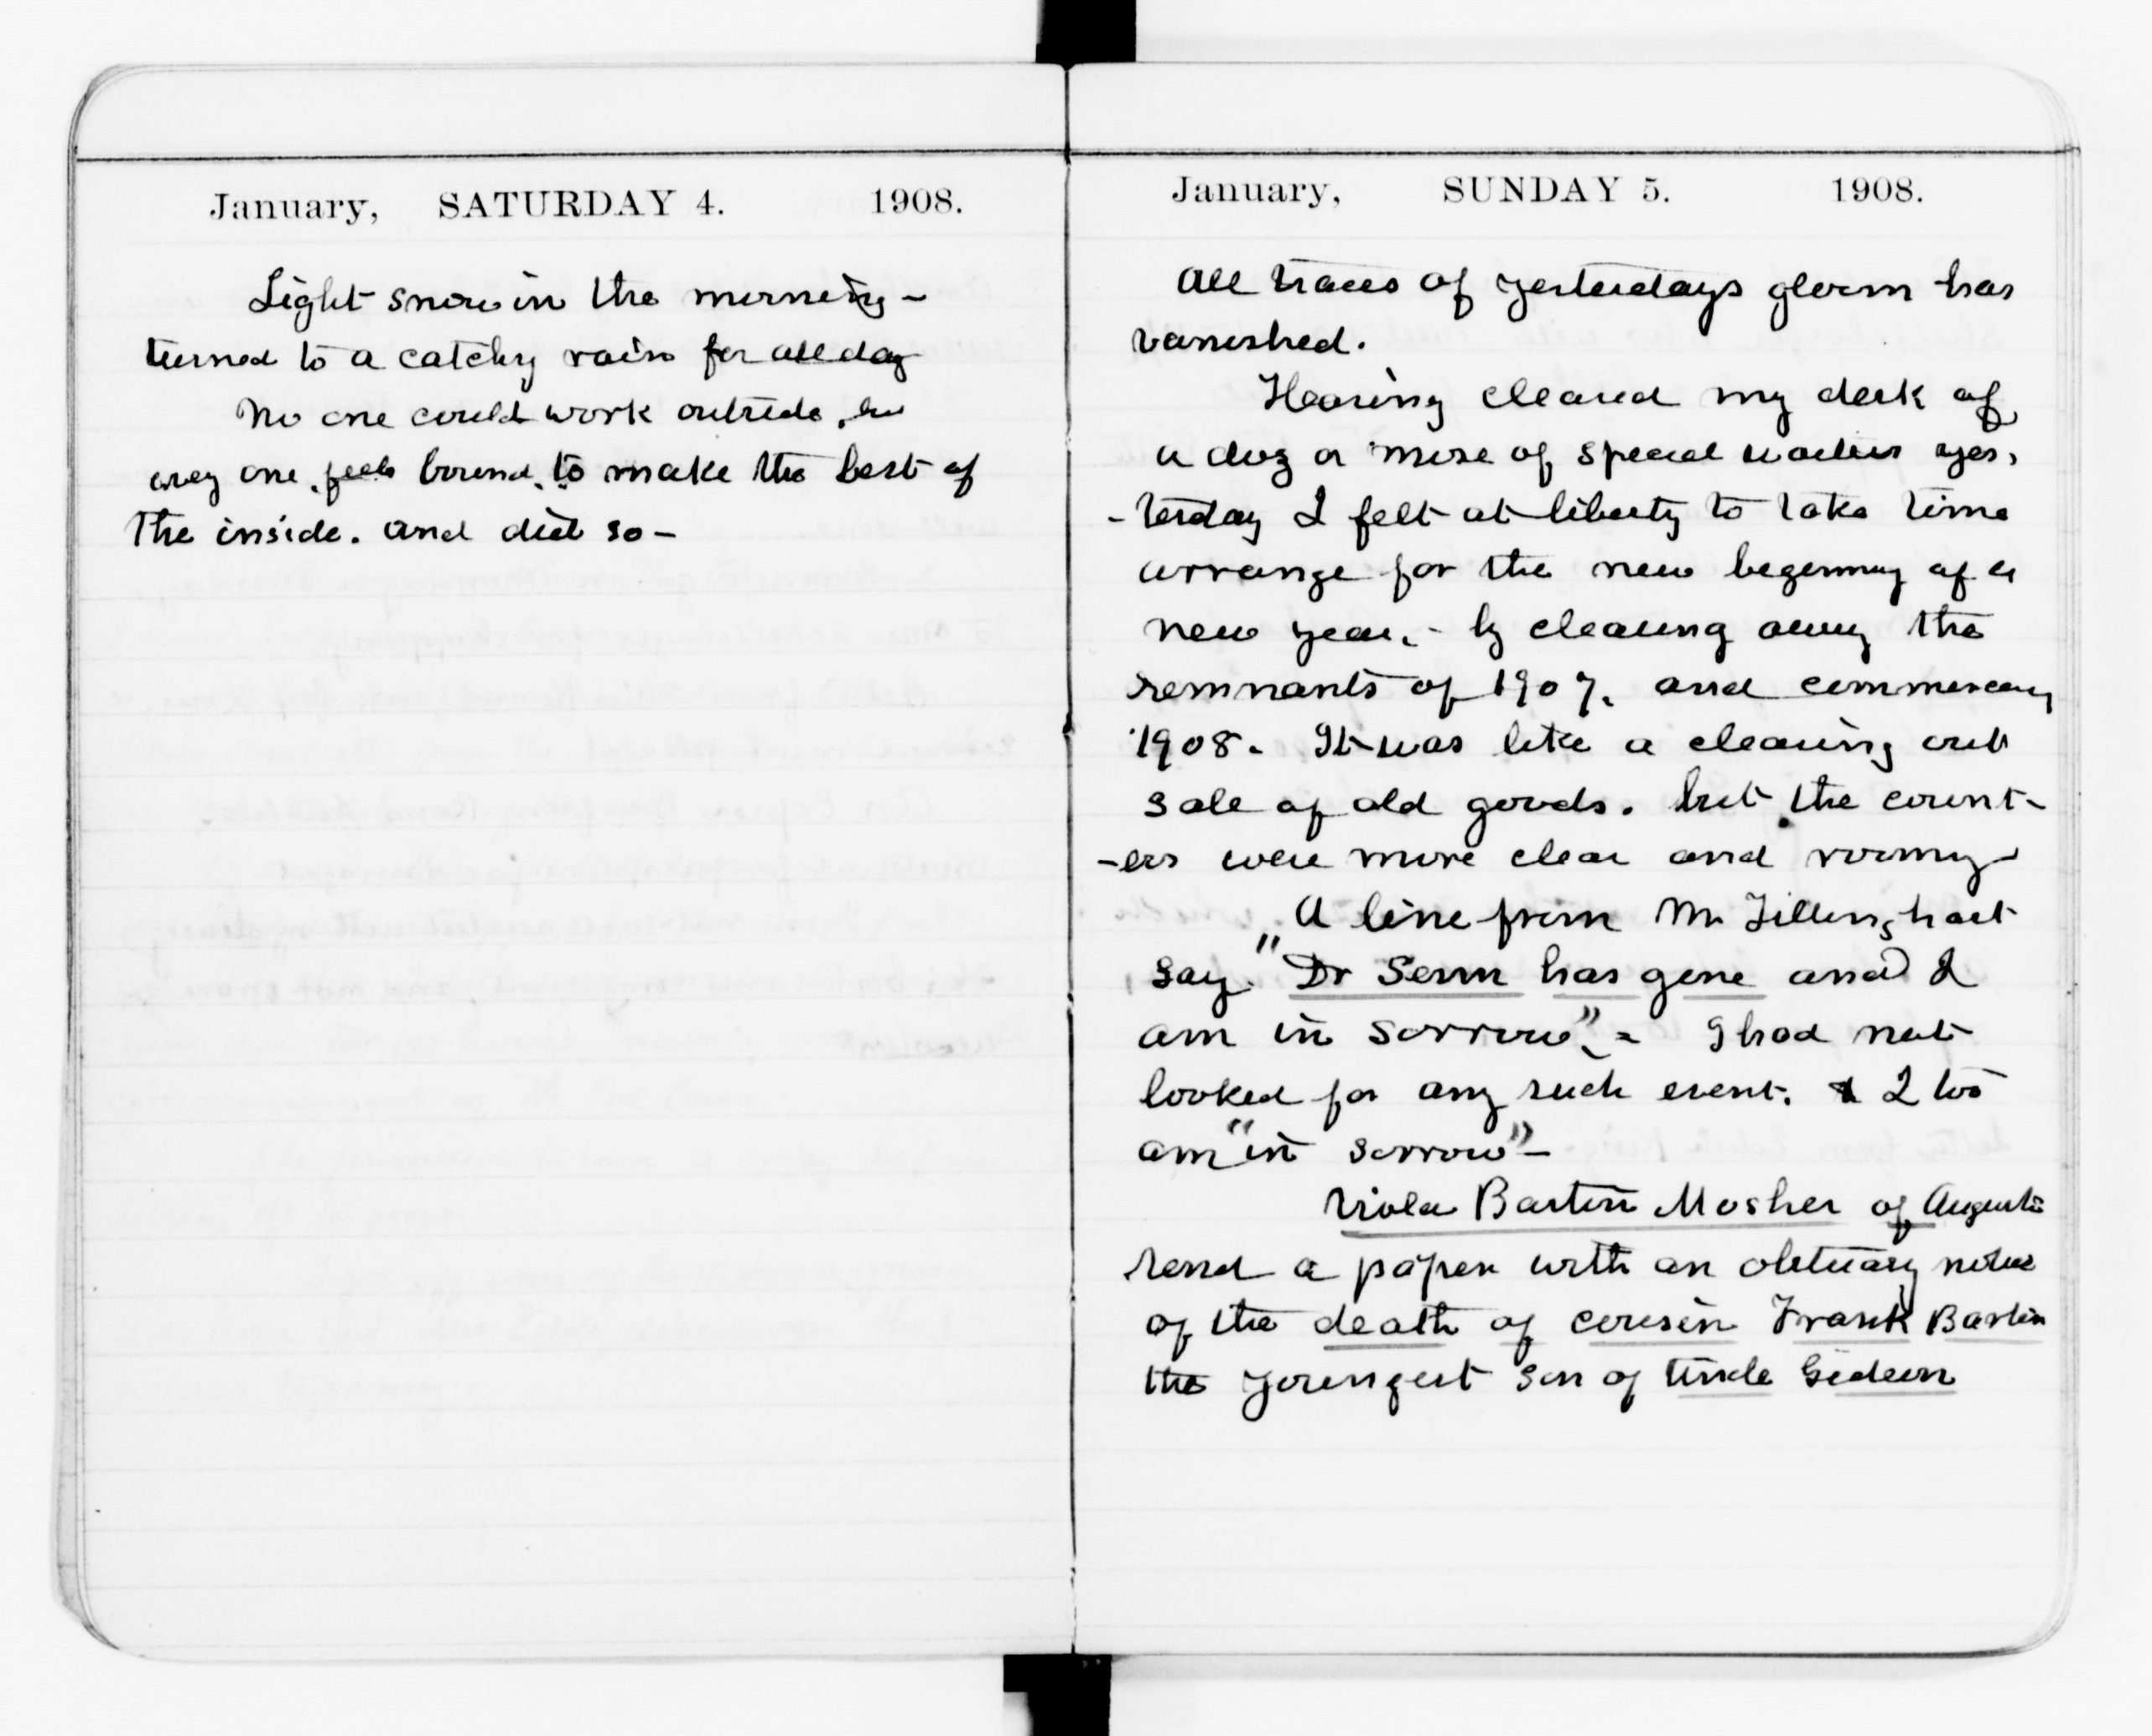 January, SATURDAY 4. 1908.
Light snow in the morning -
turned to a catchy rain for all day
No one could work outside, so
every one feels bound to make the best of
the inside. and did so -
January, SUNDAY 5. 1908.
All traces of yesterdays gloom has
vanished.
Having cleared my desk of
a doz or more of special waiters yes-
-terday I felt at liberty to take time
arrange for the new beginning of a
new year. - by clearing away the
remnants of 1907. and commencing
1908. It was like a clearing out
sale of old goods. but the count-
-ers were more clear and roomy -
A line from Mr Tillinghast
say "Dr Senn has gone and I
am in sorrow" - I had not
looked for any such event. & I too
am "in sorrow" -
Viola Barton Mosher of Augusta
send a paper with an obituary notice
of the death of cousin Frank Barton
the youngest son of Uncle Gideon